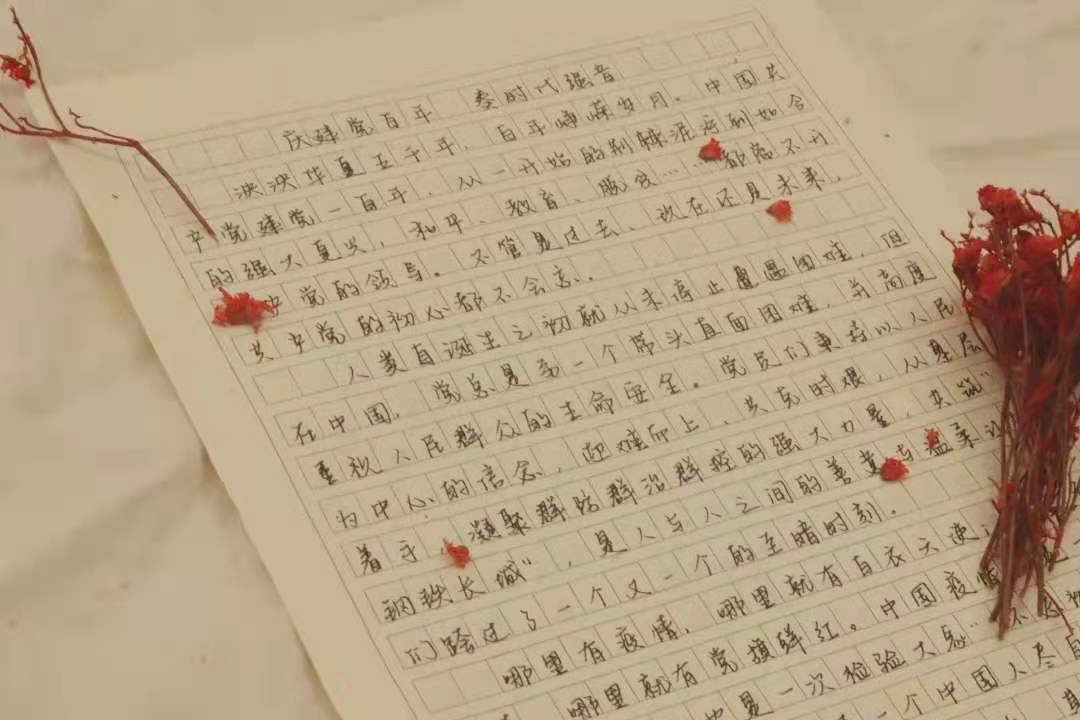 庆建党百年 奏时代强音
泱泱华夏五千年，百年峥嵘岁月。中国共
产党建党一百年，从一开始的荆棘泥泞到如今
的强大复兴，和平、教育、脱贫……都离不开
中党的领导。不管是过去、现在还是未来，
共产党的初心都不会忘。
人类自诞生之初就从未停止遭遇困难，但
在中国，党总是第一个带头直面困难，并高度
重视人民群众的生命安全。党员们秉持以人民
为中心的信念，迎难而上，共克时艰，从基层
着手，凝聚群防群治群控的强大力量，共筑"
钢铁长城"，是人与人之间的善意与温柔让
们跨过了一个又一个的至暗时刻。
哪里有疫情，哪里就有白衣天使
哪里就有党旗鲜红。中国疫情
是一次检验大忠"
一个中国人尽